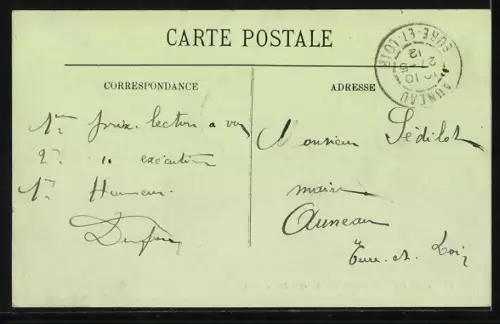 CARTE POSTALE
CORRESPONDANCE
ADRESSE
1er prix lecture à vue
2e " exécution
1er Honneur
Monsieur Sédilot
maire
Auneau
Eure-et-Loir
AUNEAU
10 10
27-5
12
EURE-ET-LOIR